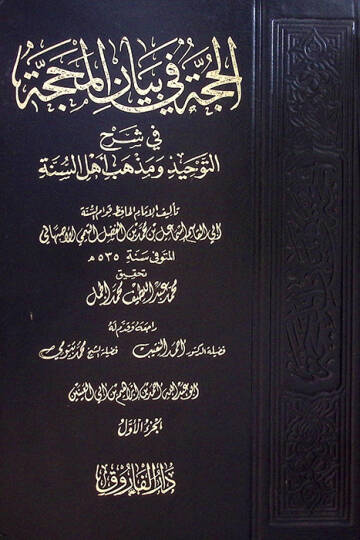 الحجة في بيان المحجة
في شرح
التوحيد ومذهب أهل السنة
تأليف الإمام الحافظ قوام السنة
أبي القاسم إسماعيل بن محمد بن الفضل التيمي الأصبهاني
المتوفى سنة ٥٣٥ هـ
تحقيق
محمد عبد اللطيف محمد الجمل
راجعه وقدم له
فضيلة الدكتور أحمد النقيب فضيلة الشيخ محمد بيومي
أبو عبد الله أحمد بن إبراهيم بن أبي العينين
الجزء الأول
دار الفاروق